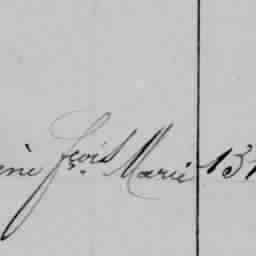 ène fçois Marie 131